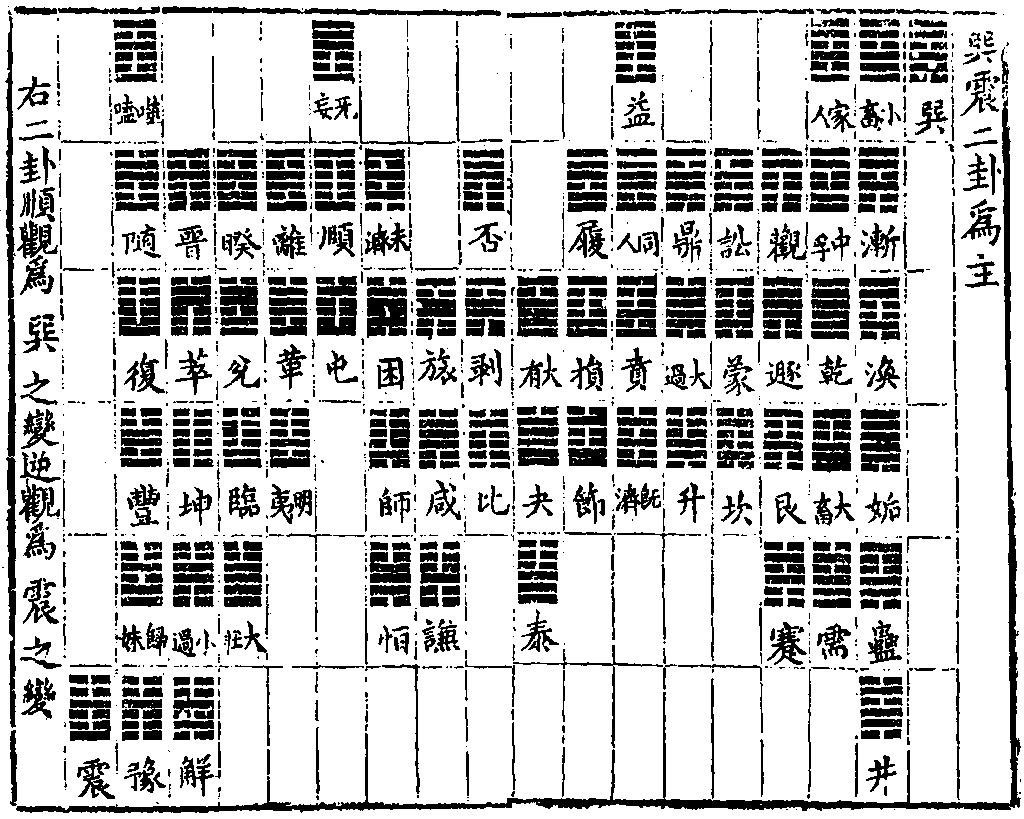 巽震二卦爲主
巽
小畜
漸
渙
姤
蠱
井
家人
中孚
乾
大畜
需
觀
遯
艮
蹇
訟
蒙
坎
鼎
大過
升
益
同人
賁
既濟
履
損
節
大有
夬
泰
否
剥
比
旅
咸
謙
未濟
困
師
恒
无妄
頤
屯
離
革
明夷
睽
兌
臨
大壯
晉
萃
坤
小過
解
噬嗑
隨
復
豐
歸妹
豫
震
右二卦順觀爲巽之變逆觀爲震之變